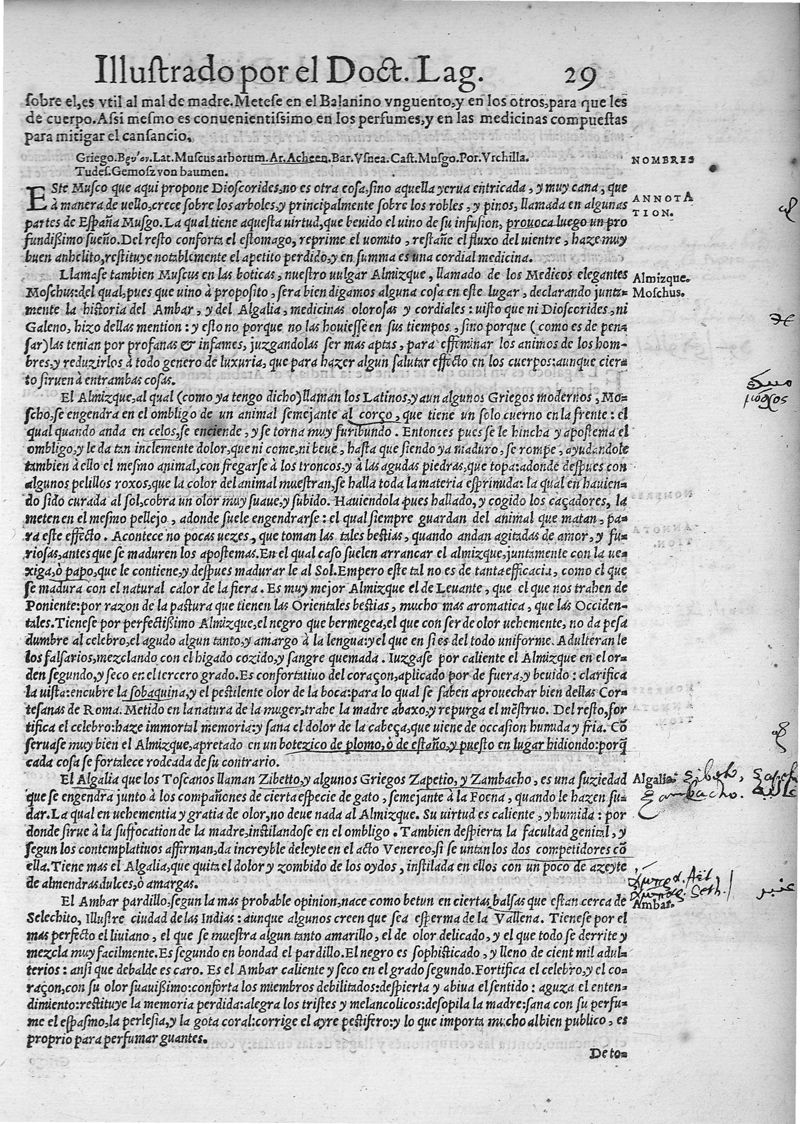 Illustrado por el Doct. Lag. 29
sobre el, es vtil al mal de madre. Metese en el Balanino vnguento, y en los otros, para que les
de cuerpo. Assi mesmo es conuenientissimo en los perfumes, y en las medicinas compuestas
para mitigar el cansancio.
Griego. Lat. Muscus arborum. Ar. Acheen. Bar. Vsnea. Cast. Musgo. Por. Vrchilla.
Tudes. Gemosz von baumen.
NOMBRES
ESte Musco que aqui propone Dioscorides, no es otra cosa, sino aquella yerua entricada, y muy cana, que
à manera de uello, crece sobre los arboles, y principalmente sobre los robles, y pinos, llamada en algunas
ANNOTA
TION.
partes de España Musgo. La qual tiene aquesta uirtud, que beuido el uino de su infusion, prouoca luego un pro
fundißimo sueño. Del resto conforta el estomago, reprime el uomito, restañe el fluxo del uientre, haze muy
buen anhelito, restituye notablemente el apetito perdido, y en summa es una cordial medicina.
Llamase tambien Muscus en las boticas, nuestro uulgar Almizque, llamado de los Medicos elegantes
Almizque.
Moschus: del qual, pues que uino à proposito, sera bien digamos alguna cosa en este lugar, declarando junta-
Moschus.
mente la historia del Ambar, y del Algalia, medicinas olorosas y cordiales: uisto que ni Dioscorides, ni
Galeno, hizo dellas mention: y esto no porque no las houiesse en sus tiempos, sino porque (como es de pen-
sar) las tenian por profanas & infames, juzgandolas ser mas aptas, para effeminar los animos de los hom-
bres, y reduzirlos à todo genero de luxuria, que para hazer algun salutar effecto en los cuerpos: aunque cier-
to siruen à entrambas cosas.
El Almizque, al qual (como ya tengo dicho) llaman los Latinos, y aun algunos Griegos modernos, Mo-
scho, se engendra en el ombligo de un animal semejante al corço, que tiene un solo cuerno en la frente: el
qual quando anda en celos, se enciende, y se torna muy furibundo. Entonces pues se le hincha y apostema el
ombligo, y le da tan inclemente dolor, que ni come, ni beue, hasta que siendo ya maduro, se rompe, ayudandole
tambien à ello el mesmo animal, con fregarse à los troncos, y à las agudas piedras, que topa: adonde despues con
algunos pelillos roxos, que la color del animal muestran, se halla toda la materia esprimida: la qual en hauien-
do sido curada al sol, cobra un olor muy suaue, y subido. Hauiendola pues hallado, y cogido los caçadores, la
meten en el mesmo pellejo, adonde suele engendrarse: el qual siempre guardan del animal que matan, pa-
ra este effecto. Acontece no pocas uezes, que toman las tales bestias, quando andan agitadas de amor, y fu-
riosas, antes que se maduren los apostemas. En el qual caso suelen arrancar el almizque, juntamente con la ue-
xiga, ò papo, que le contiene, y despues madurar le al Sol. Empero este tal no es de tanta efficacia, como el que
se madura con el natural calor de la fiera. Es muy mejor Almizque el de Leuante, que el que nos trahen de
Poniente: por razon de la pastura que tienen las Orientales bestias, mucho mas aromatica, que las Occiden-
tales. Tienese por perfectißimo Almizque, el negro que bermegea, el que con ser de olor uehemente, no da pesa
dumbre al celebro, el agudo algun tanto, y amargo à la lengua: y el que en si es del todo uniforme. Adulteran le
los falsarios, mezclando con el higado cozido, y sangre quemada. Iuzgase por caliente el Almizque en el or-
den segundo, y seco en el tercero grado. Es confortatiuo del coraçon, aplicado por de fuera, y beuido: clarifica
la uista: encubre la sobaquina, y el pestilente olor de la boca: para lo qual se saben aprouechar bien dellas Cor-
tesanas de Roma. Metido en la natura de la muger, trahe la madre abaxo, y repurga el mẽstruo. Del resto, for
tifica el celebro: haze immortal memoria: y sana el dolor de la cabeça, que uiene de occasion humida y fria. Cõ
seruase muy bien el Almizque, apretado en un botezico de plomo, ò de estaño, y puesto en lugar hidiondo: porq̃
cada cosa se fortalece rodeada de su contrario.
El Algalia que los Toscanos llaman Zibetto, y algunos Griegos Zapetio, y Zambacho, es una suziedad
Algalia.
que se engendra junto à los compañones de cierta especie de gato, semejante à la Foena, quando le hazen su-
dar. La qual en uehementia y gratia de olor, no deue nada al Almizque. Su uirtud es caliente, y humida: por
donde sirue à la suffocation de la madre, instilandose en el ombligo. Tambien despierta la facultad genital, y
segun los contemplatiuos affirman, da increyble deleyte en el acto Venereo, si se untan los dos competidores cõ
ella. Tiene mas el Algalia, que quita el dolor y zombido de los oydos, instilada en ellos con un poco de azeyte
de almendras dulces, ò amargas.
El Ambar pardillo, segun la mas probable opinion, nace como betun en ciertas balsas que estan cerca de
Ambar.
عنبر
Selechito, Illustre ciudad de las Indias: aunque algunos creen que sea esperma de la Vallena. Tienese por el
mas perfecto el liuiano, el que se muestra algun tanto amarillo, el de olor delicado, y el que todo se derrite y
mezcla muy facilmente. Es segundo en bondad el pardillo. El negro es sophisticado, y lleno de cient mil adul-
terios: ansi que debalde es caro. Es el Ambar caliente y seco en el grado segundo. Fortifica el celebro, y el co-
raçon, con su olor suauißimo: conforta los miembros debilitados: despierta y abiua el sentido: aguza el enten-
dimiento: restituye la memoria perdida: alegra los tristes y melancolicos: desopila la madre: sana con su perfu-
me el espasmo, la perlesia, y la gota coral: corrige el ayre pestifero: y lo que importa mucho al bien publico, es
proprio para perfumar guantes.
De to-